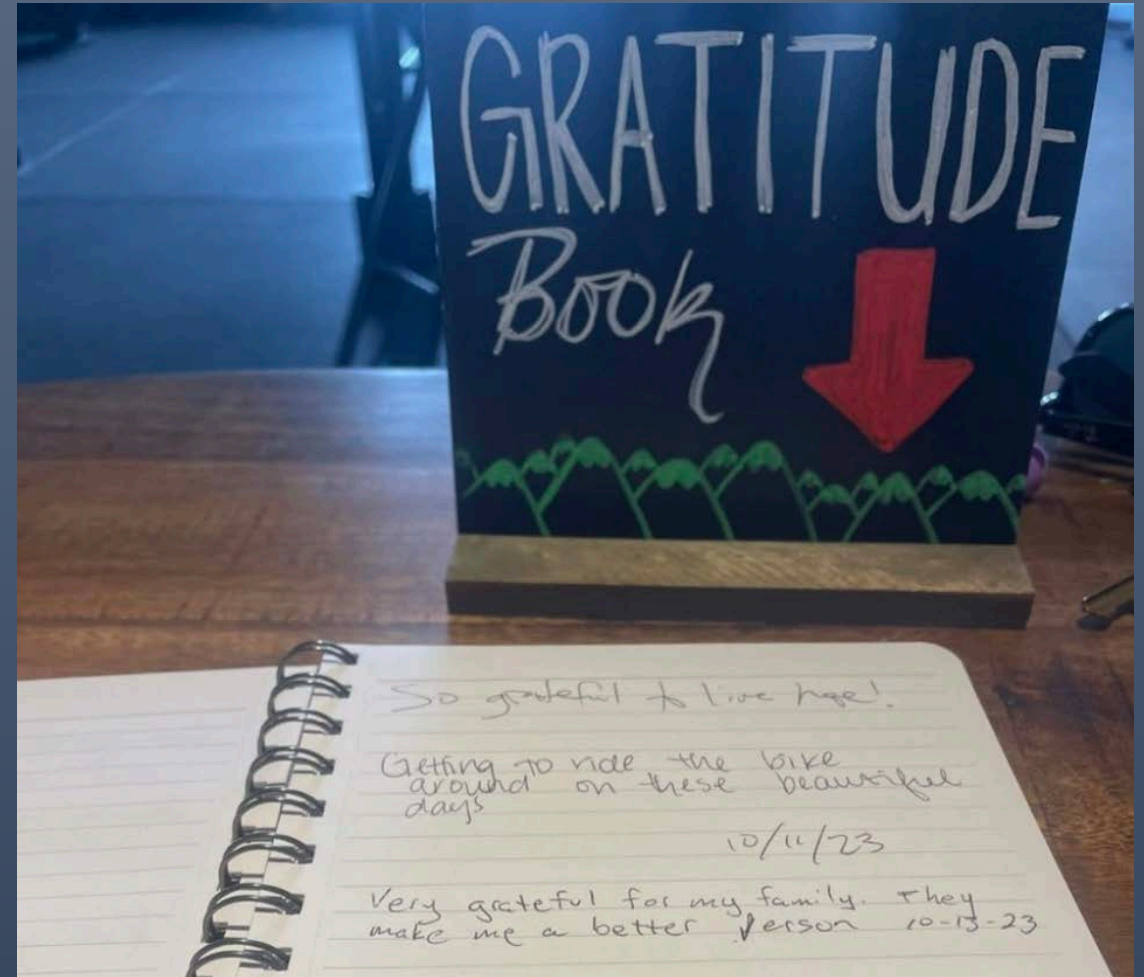 GRATITUDE
Book
So grateful to live here!
Getting to ride the bike
around on these beautiful
days
10/11/23
Very grateful for my family. They
make me a better person 10-13-23